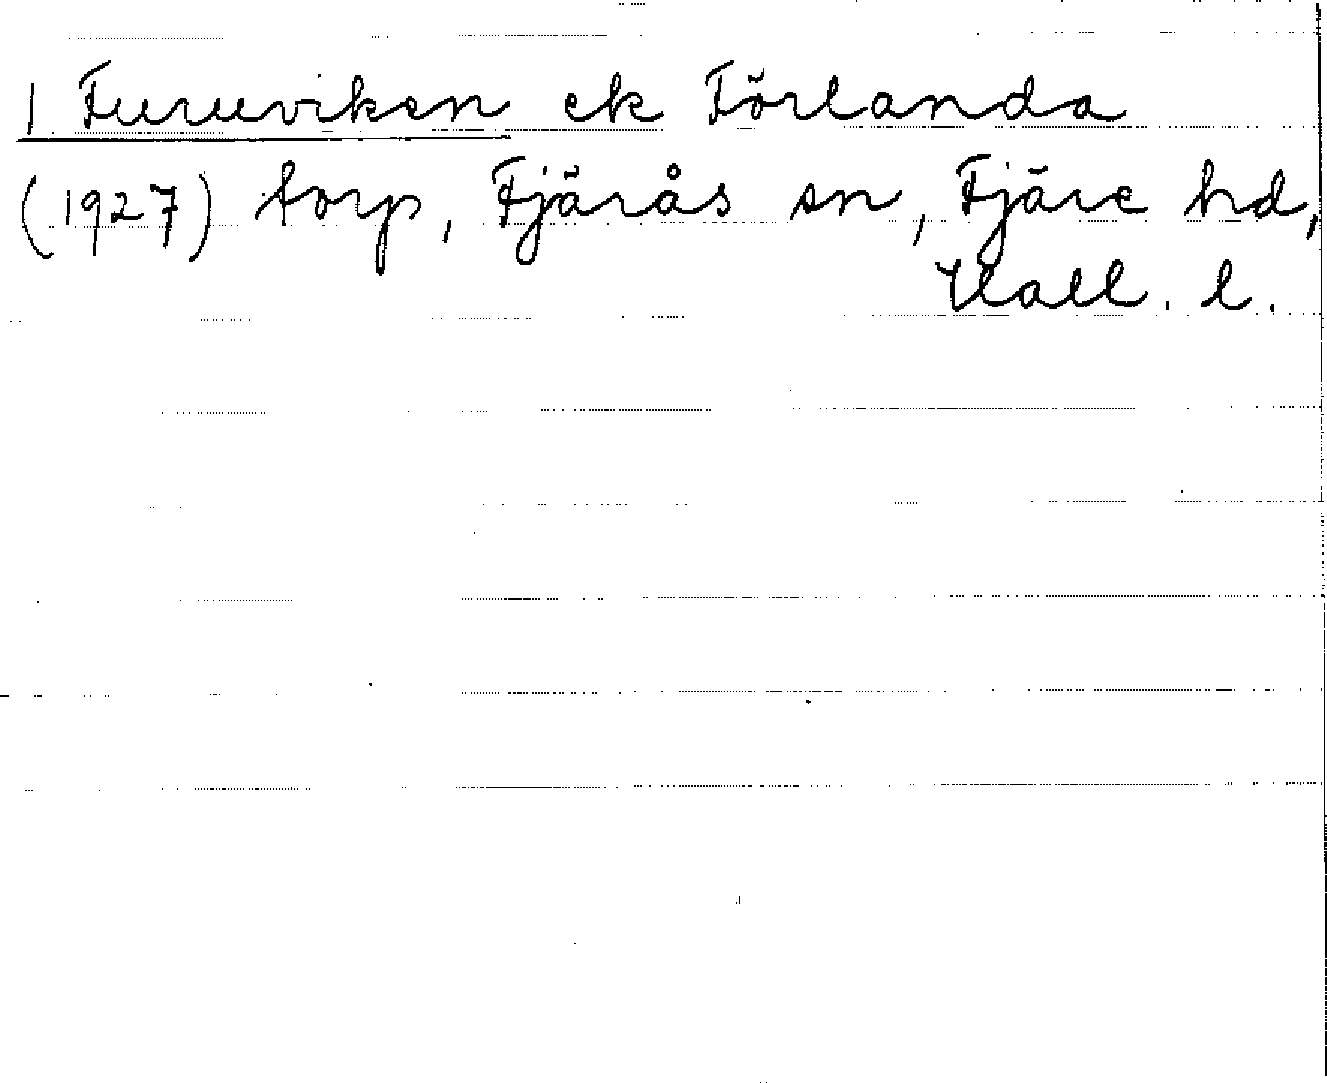 1 Furuviken ek Förlanda
(1927) torp, Fjärås sn, Fjäre hd,
Hall. l.